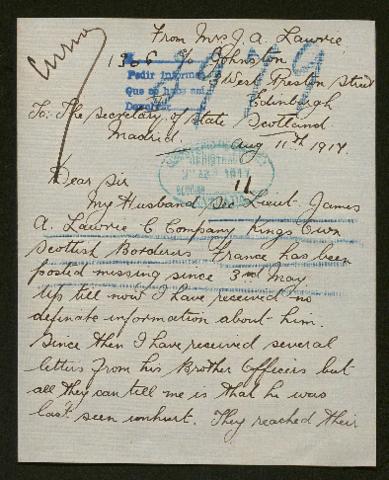 From Mrs J. A. Lawrie
1366 C/o Johnston
Pedir informes
3 West Preston Street
Que se hace
Edinburgh
To: The Secretary of State Scotland
Madrid.
Aug 11th 1917.
Dear Sir
11
My Husband Sec Lieut James
A. Lawrie C Company Kings Own
Scottish Borderers France has been
posted missing since 3rd May
Up till now I have received no
definate information about him.
Since then I have received several
letters from his Brother Officers but
all they can till me is that he was
last seen unhurt. They reached their